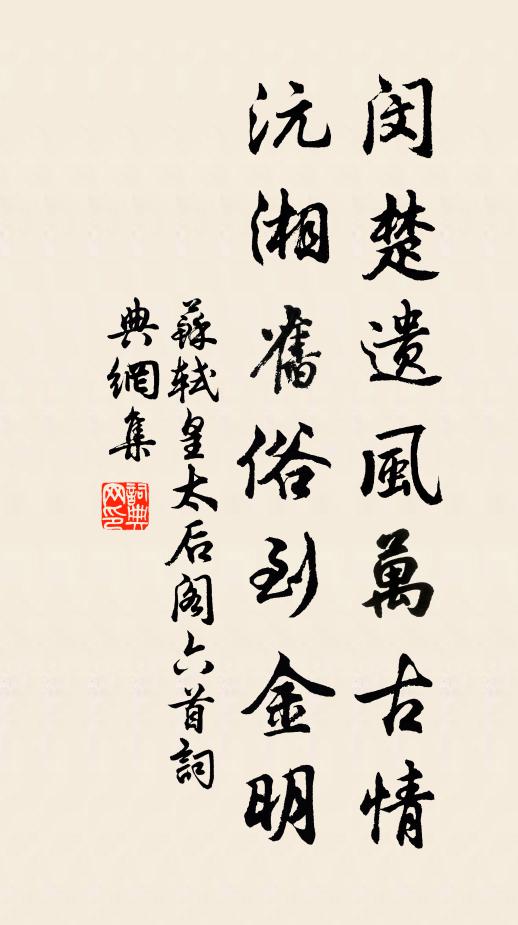 闵楚遗風萬古情
沅湘舊俗到金明
蘇軾皇太后阁六首詞
典網集
詞典网印